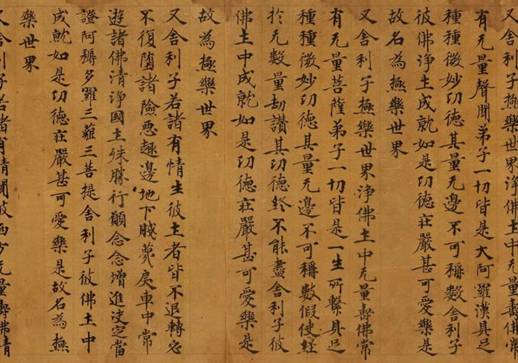 又舍利子極樂世界淨佛土中无量壽佛常
有无量聲聞弟子一切皆是大阿羅漢具足
種種微妙功德其量无邊不可稱數舍利子
彼佛淨土成就如是功德莊嚴甚可愛樂是
故名為極樂世界
又舍利子極樂世界淨佛土中无量壽佛常
有无量菩薩弟子一切皆是一生所繫具足
種種微妙功德其量无邊不可稱數假使經
於无數量劫讚其功德終不能盡舍利子彼
佛土中成就如是功德莊嚴甚可愛樂是
故為極樂世界
又舍利子若諸有情生彼土者皆不退轉必
不復墮諸險惡趣邊地下賤蔑戾車中常
遊諸佛清淨國土殊勝行願念念增進決定當
證阿耨多羅三藐三菩提舍利子彼佛土中
成就如是功德莊嚴甚可愛樂是故名為極
樂世界
又舍利子若諸有情聞彼西方无量壽佛清